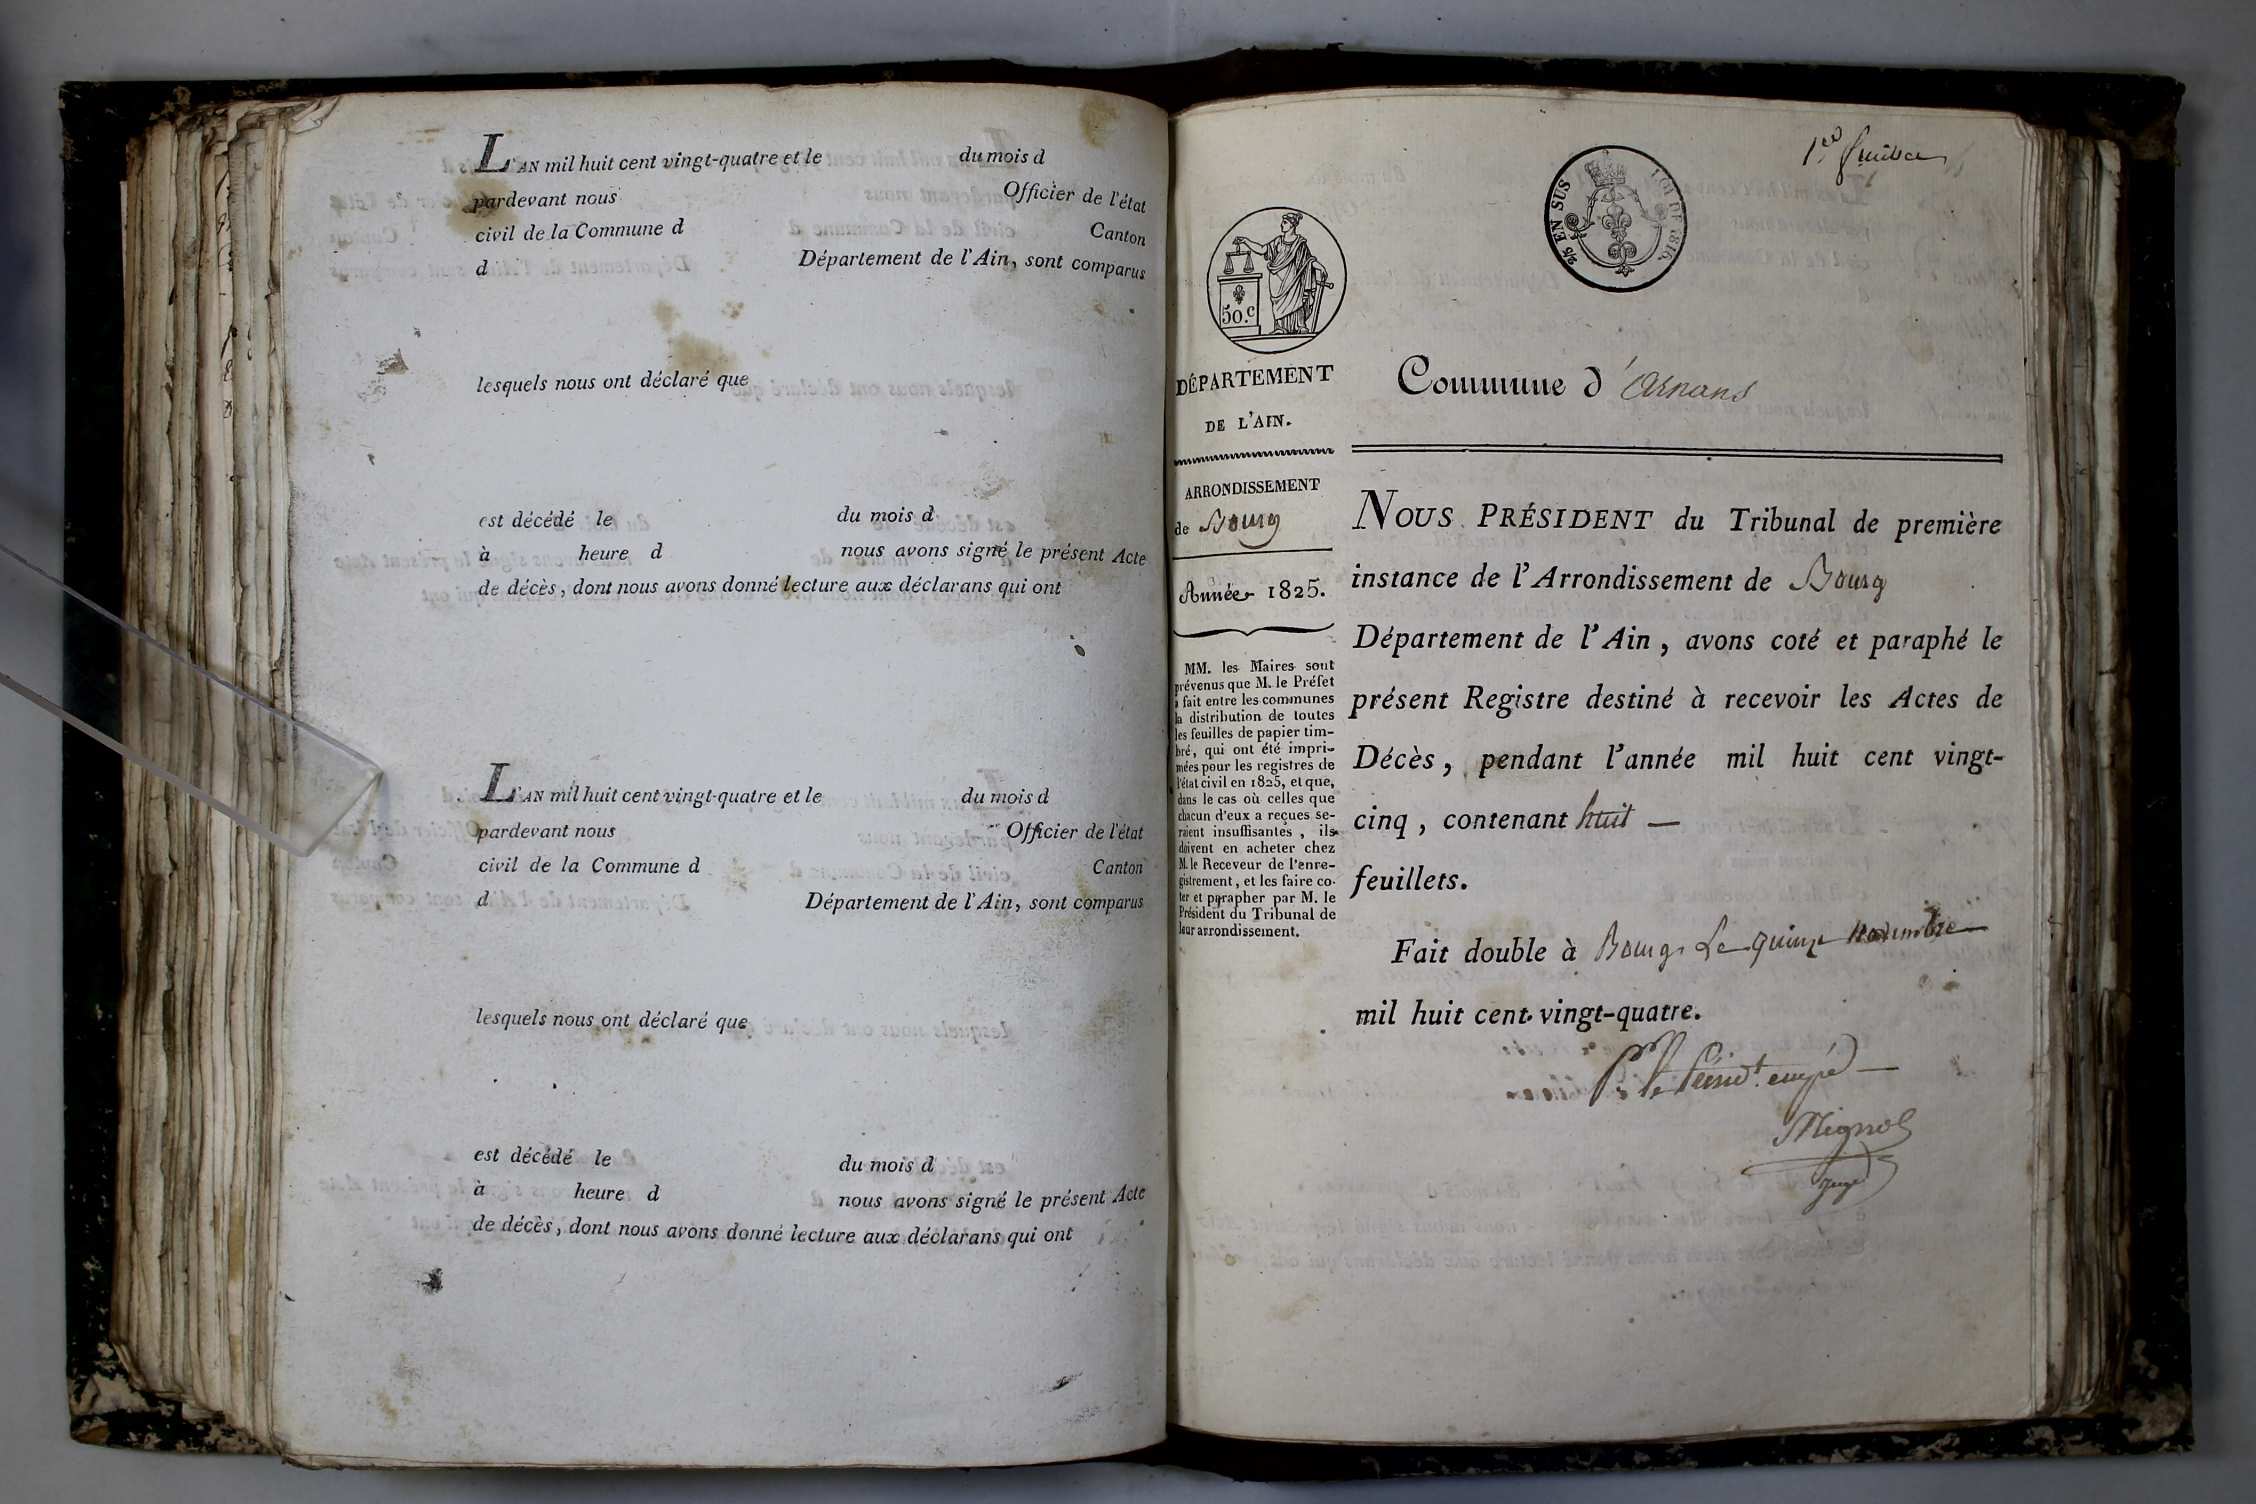 L'AN mil huit cent vingt-quatre et le du mois d
pardevant nous Officier de l'état
civil de la Commune d Canton
d Département de l'Ain, sont comparus
lesquels nous ont déclaré que
est décédé le du mois d
à heure d nous avons signé le présent Acte
de décès, dont nous avons donné lecture aux déclarans qui ont
L'AN mil huit cent vingt-quatre et le du mois d
pardevant nous Officier de l'état
civil de la Commune d Canton
d Département de l'Ain, sont comparus
lesquels nous ont déclaré que
est décédé le du mois d
à heure d nous avons signé le présent Acte
de décès, dont nous avons donné lecture aux déclarans qui ont
EN SUS LOI DE 1816.
50.c
DÉPARTEMENT
DE L'AIN.
ARRONDISSEMENT
de Bourg
Année 1825.
MM. les Maires sont
prévenus que M. le Préfet
a fait entre les communes
la distribution de toutes
les feuilles de papier tim-
bré, qui ont été impri-
mées pour les registres de
l'état civil en 1825, et que,
dans le cas où celles que
chacun d'eux a reçues se-
raient insuffisantes, ils
doivent en acheter chez
M. le Receveur de l'enre-
gistrement, et les faire co-
ter et parapher par M. le
Président du Tribunal de
leur arrondissement.
Commune d'Arnans
NOUS PRÉSIDENT du Tribunal de première
instance de l'Arrondissement de Bourg
Département de l'Ain, avons coté et paraphé le
présent Registre destiné à recevoir les Actes de
Décès, pendant l'année mil huit cent vingt-
cinq, contenant huit —
feuillets.
Fait double à Bourg Le quinze novembre
mil huit cent vingt-quatre.
P. le Présidt. empé
Mignot
juge